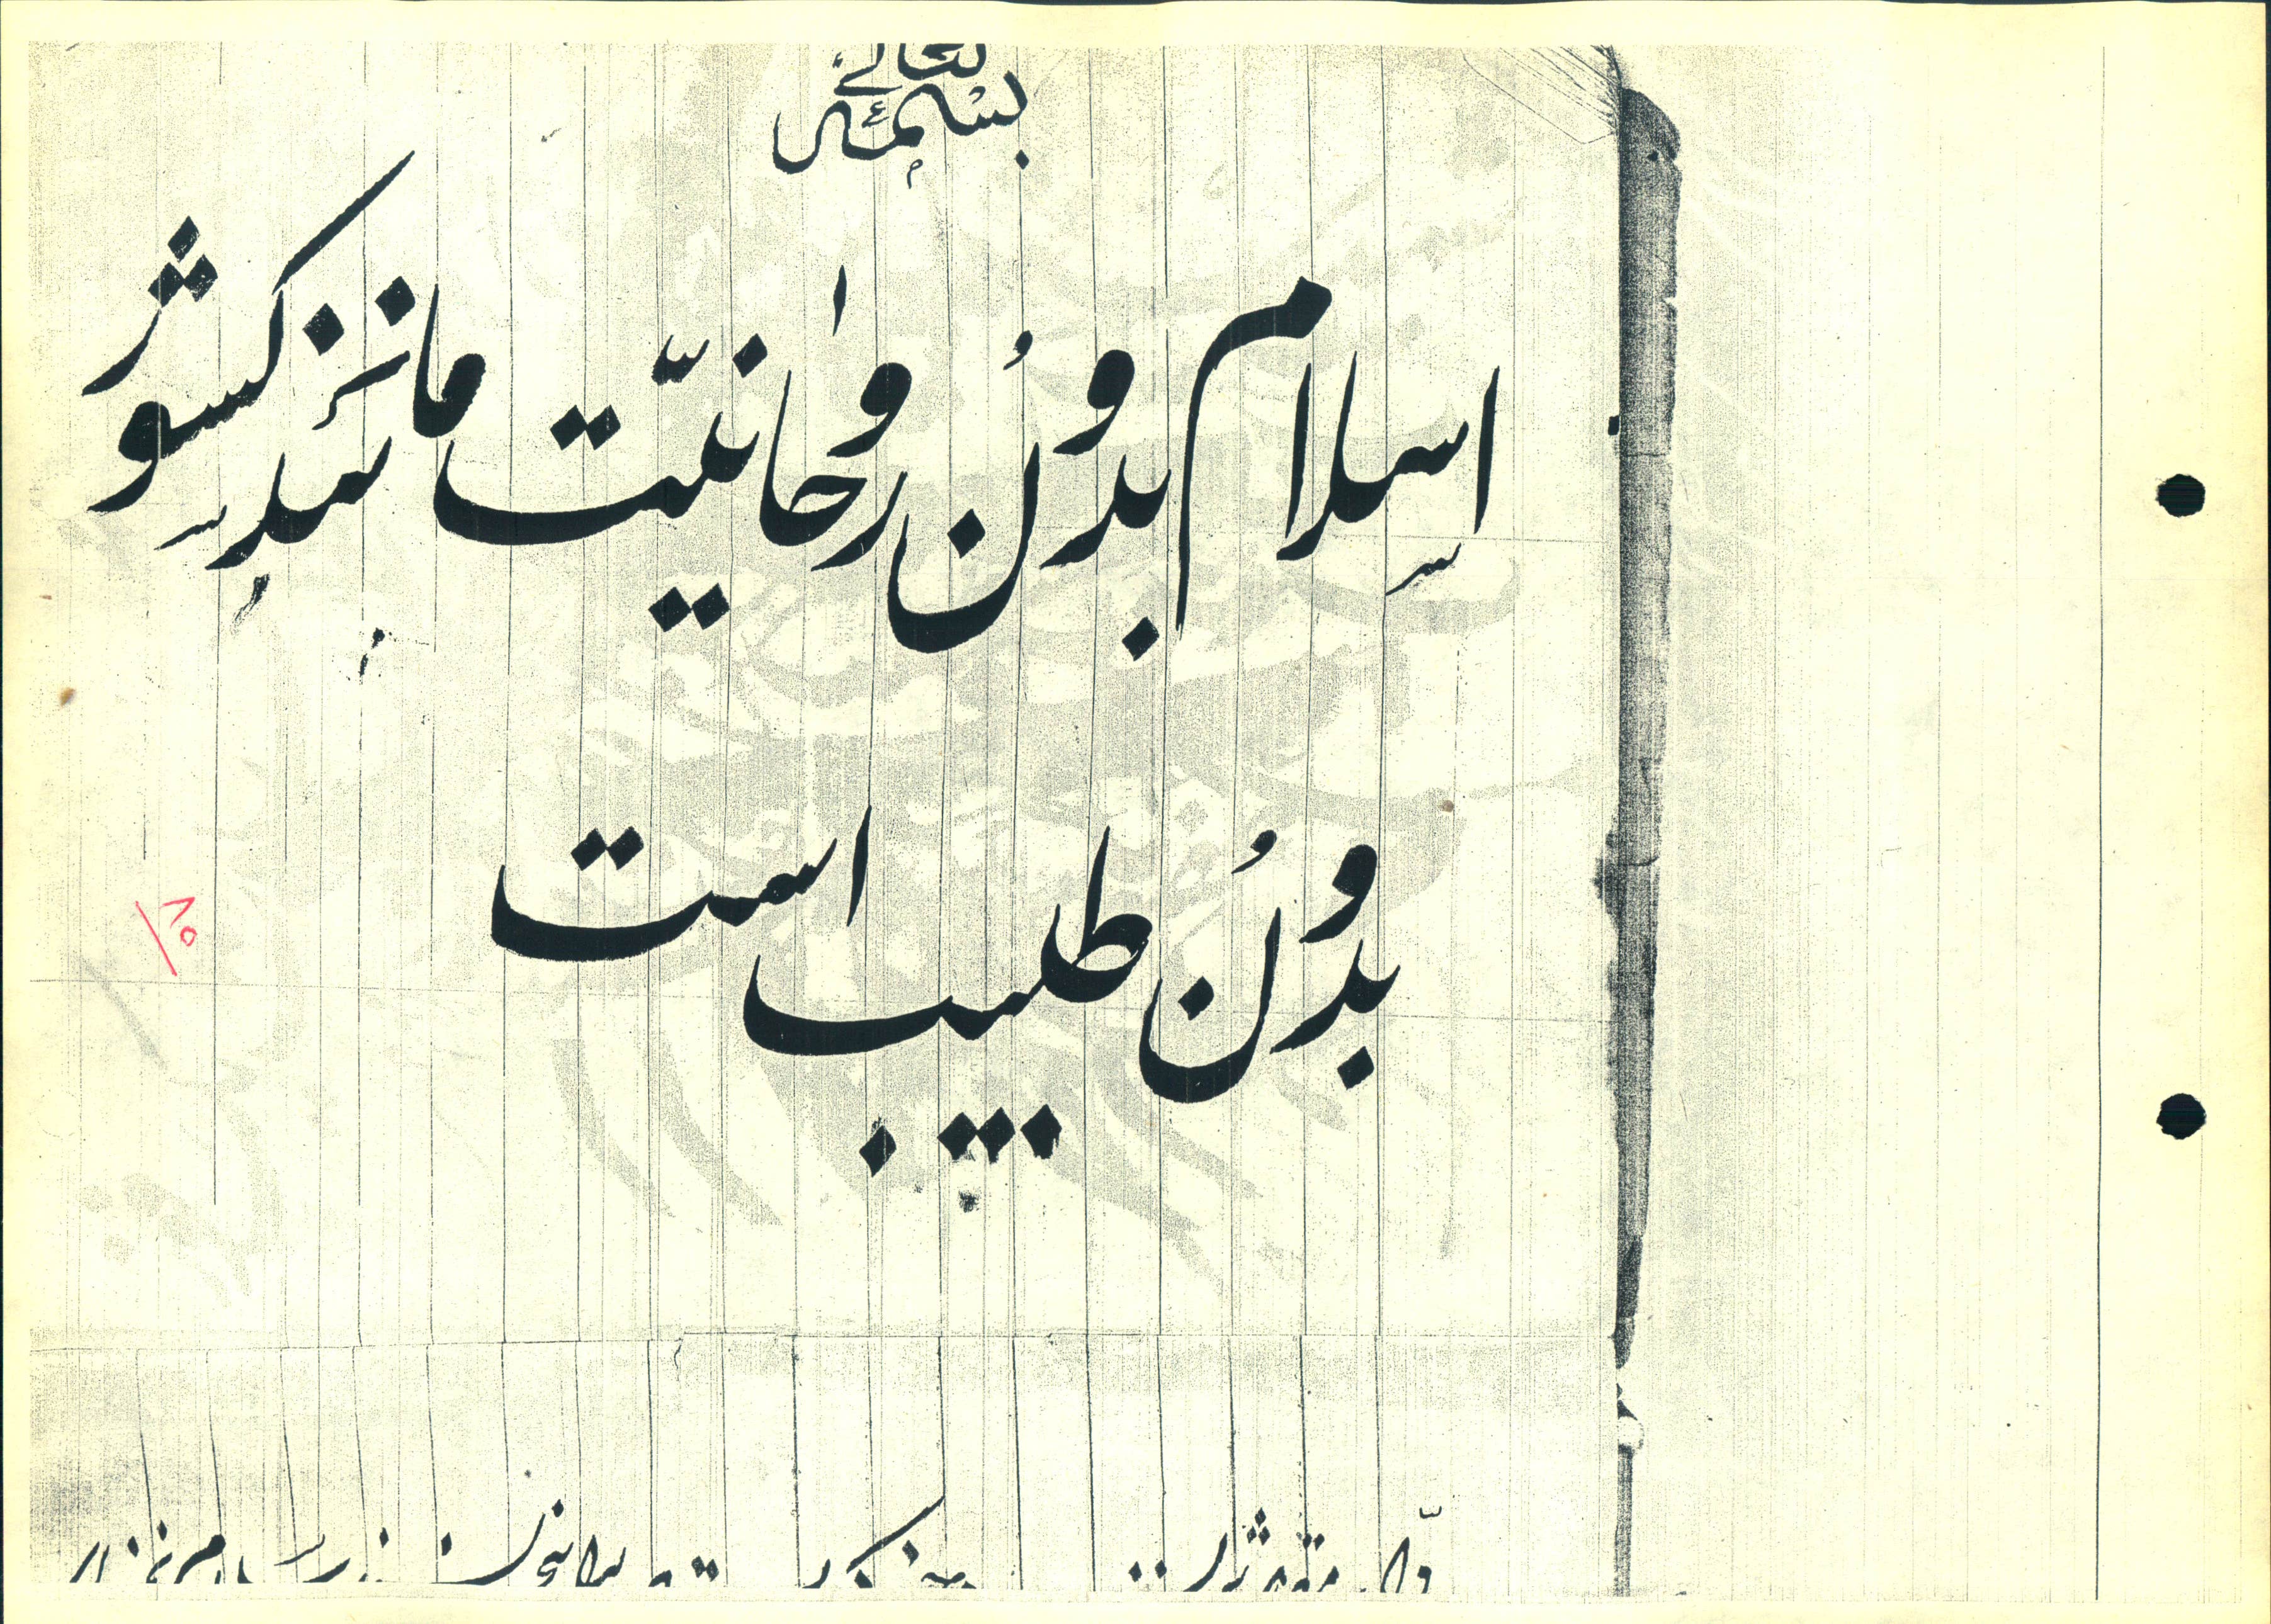 بسمه تعالی
اسلام بدون روحانیّت مانند کشور
بدون طبیب است